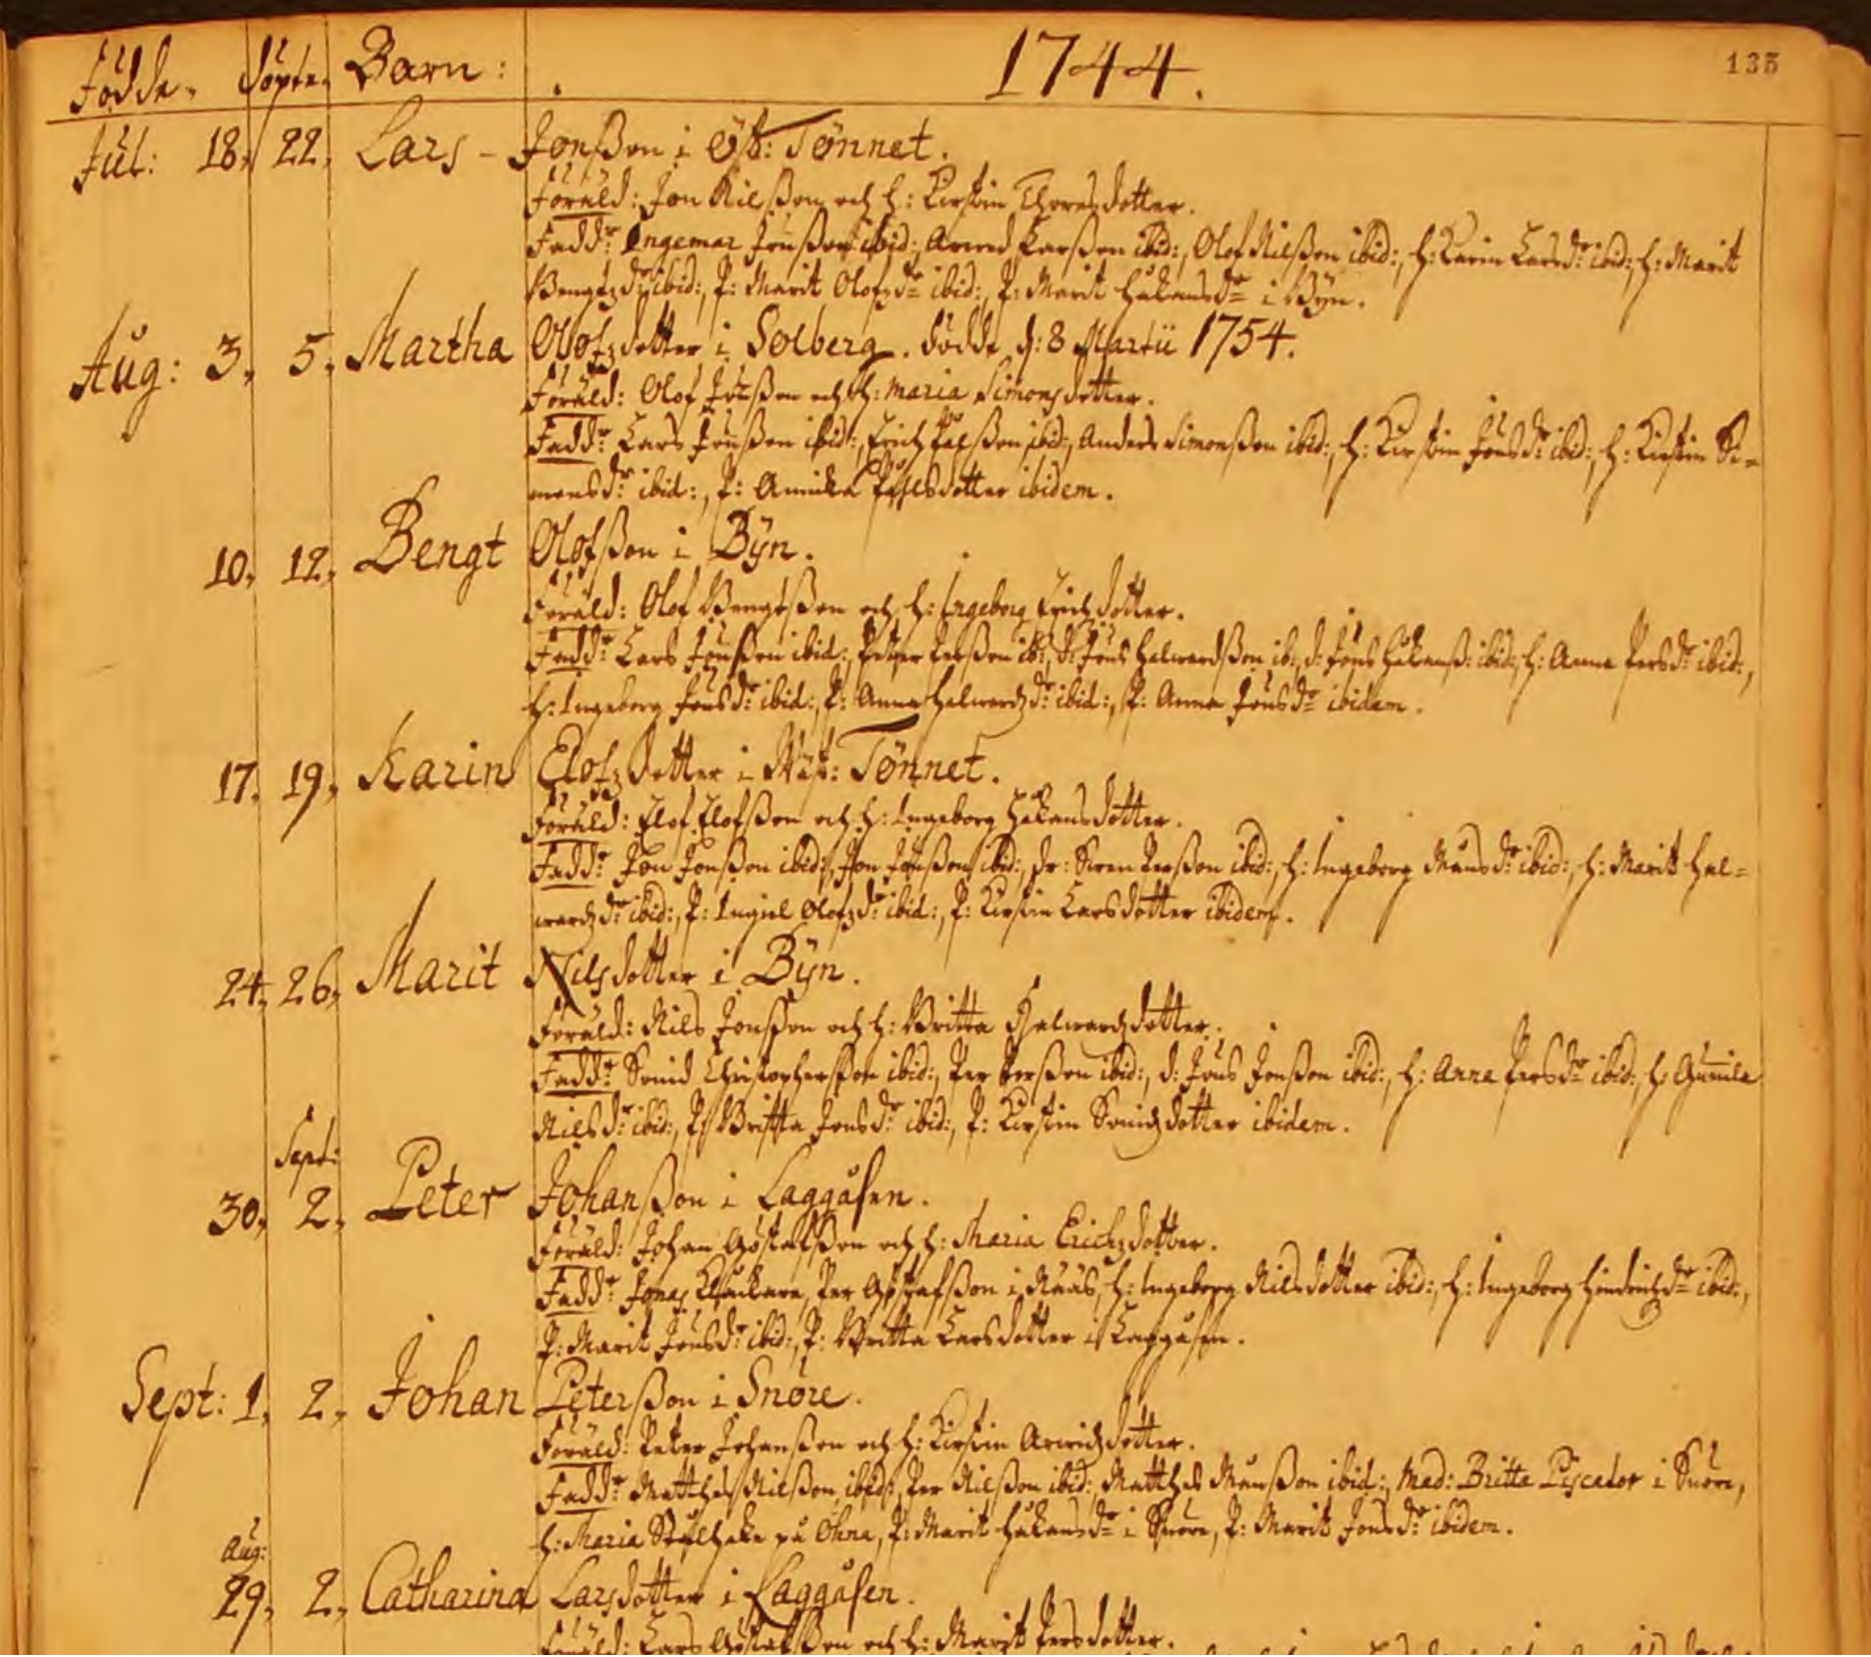 Födde. Döpte. Barn: 1744. 135
Jul: 18, 22, Lars - Jonßon i Öst: Tönnet.
Föräld: Jon Nilßon och h: Kirstin Thoresdotter.
Fadd:r Ingemar Jonßon ibid:, Arwed Larßon ibid:, Olof Nilßon ibid:, h: Karin Larsd:r ibid:, h: Marit
Bengtzd:r ibid:, P: Marit Olofzd:r ibid:, P: Marit Håkansd:r i Byn.
Aug: 3, 5, Martha Olofzdotter i Solberg. dödde d: 8 Martii 1754.
Föräld: Olof Jönßon och h: Maria Simonsdotter.
Fadd:r Lars Jönßon ibid:, Erich Pålßon ibid:, Anders Simonßon ibid:, h: Kirstin Jönsd:r ibid:, h: Kirstin Si=
monsd:r ibid:, P: Annika Pålsdotter ibidem.
10, 12, Bengt Olofßon i Byn.
Föräld: Olof Bengtßon och h: Ingeborg Erichzdotter.
Fadd:r Lars Jonßon ibid:, Petter Perßon ib:, d: Jöns Halwardßon ib:, d: Jöns Håkanß: ibid:, h: Anna Persd:r ibid:,
h: Ingeborg Jönsd:r ibid:, P: Anna Halwardzd:r ibid:, P: Anna Jönsd:r ibidem.
17, 19, Karin Elofzdotter i Wäst: Tönnet.
Föräld: Elof Elofßon och h: Ingeborg Håkansdotter.
Fadd:r Jon Jonßon ibid:, Jon Jönßon ibid:, dr: Swen Perßon ibid:, h: Ingeborg Månsd:r ibid:, h: Marit Hal=
wardzd:r ibid:, P: Ingiel Olofzd:r ibid:, P: Kirstin Larsdotter ibidem.
24, 26, Marit Nilsdotter i Byn.
Föräld: Nils Jonßon och h: Britta Halwardzdotter.
Fadd:r Swnid Christopherßon ibid:, Per Perßon ibid:, d: Jöns Jonßon ibid:, h: Anna Persd:r ibid:, h: Gunila
Nilsd:r ibid:, P: Britta Jonsd:r ibid:, P: Kirstin Swnidzdotter ibidem.
Sept:
30, 2, Peter Johanßon i Laggåsen.
Föräld: Johan Göstafßon och h: Maria Erichzdotter.
Fadd:r Jonas Per Göstafßon i Nääs, h: Ingeborg Nilsdotter ibid:, h: Ingeborg Hindrichzd:r ibid:,
P: Marit Jonsd:r ibid:, P: Britta Larsdotter i Laggåsen.
Sept: 1, 2, Johan Peterßon i Snöre.
Föräld: Peter Johanßon och h: Kirstin Arwidzdotter.
Fadd:r Matthes Nilßon ibid:, Per Nilßon ibid:, Matthes Månßon ibid:, Mad: Britta Piscator i Snöre,
h: Maria Stålhake på Öhna, P: Marit Håkansd:r i Snöre, P: Marit Jonsd:r ibidem.
Aug:
29, 2, Catharina Larsdotter i Laggåsen.
Föräld: Lars Göstafßon och h: Marit Persdotter.